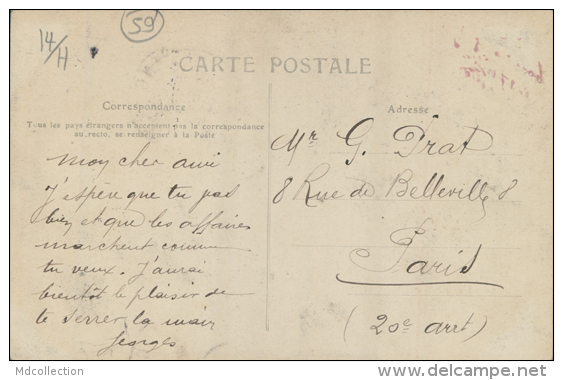 14/H
59
CARTE POSTALE
Correspondance
Tous les pays étrangers n'acceptent pas la correspondance
au recto, se renseigner à la Poste
Adresse
Mon cher ami
J'espère que tu pas
bien, et que les affaires
marchent comme
tu veux. J'aurai
bientôt le plaisir de
te serrer la main
Georges
Mr G. Prat
8 Rue de Belleville 8
Paris
(20e arrt)
Mdcollection
http://www.delcampe.net